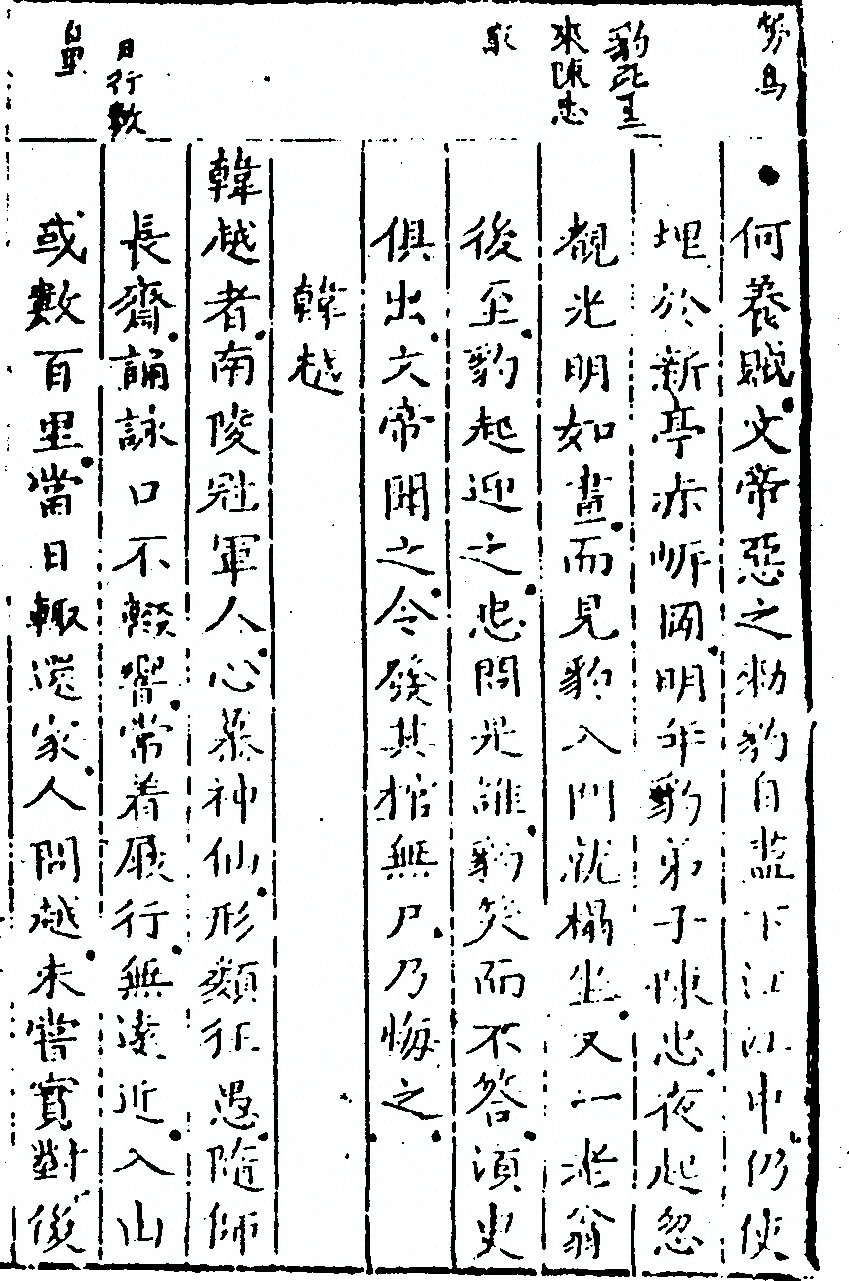 豹死生
來陳忠
日行數
何養賊文帝惡之勑豹自盡下江江中仍使
埋於新亭赤岸岡明年豹弟子陳忠夜起忽
覩光明如晝而見豹入門就榻坐又一老翁
後至豹起迎之忠問是誰豹笑而不答須臾
俱出文帝聞之令發其棺無尸乃悔之
韓越
韓越者南陵冠軍人心慕神仙形類狂愚隨師
長齋誦詠口不輟響常着屐行無遠近入山
或數百里當日輒還家人問越未嘗實對後